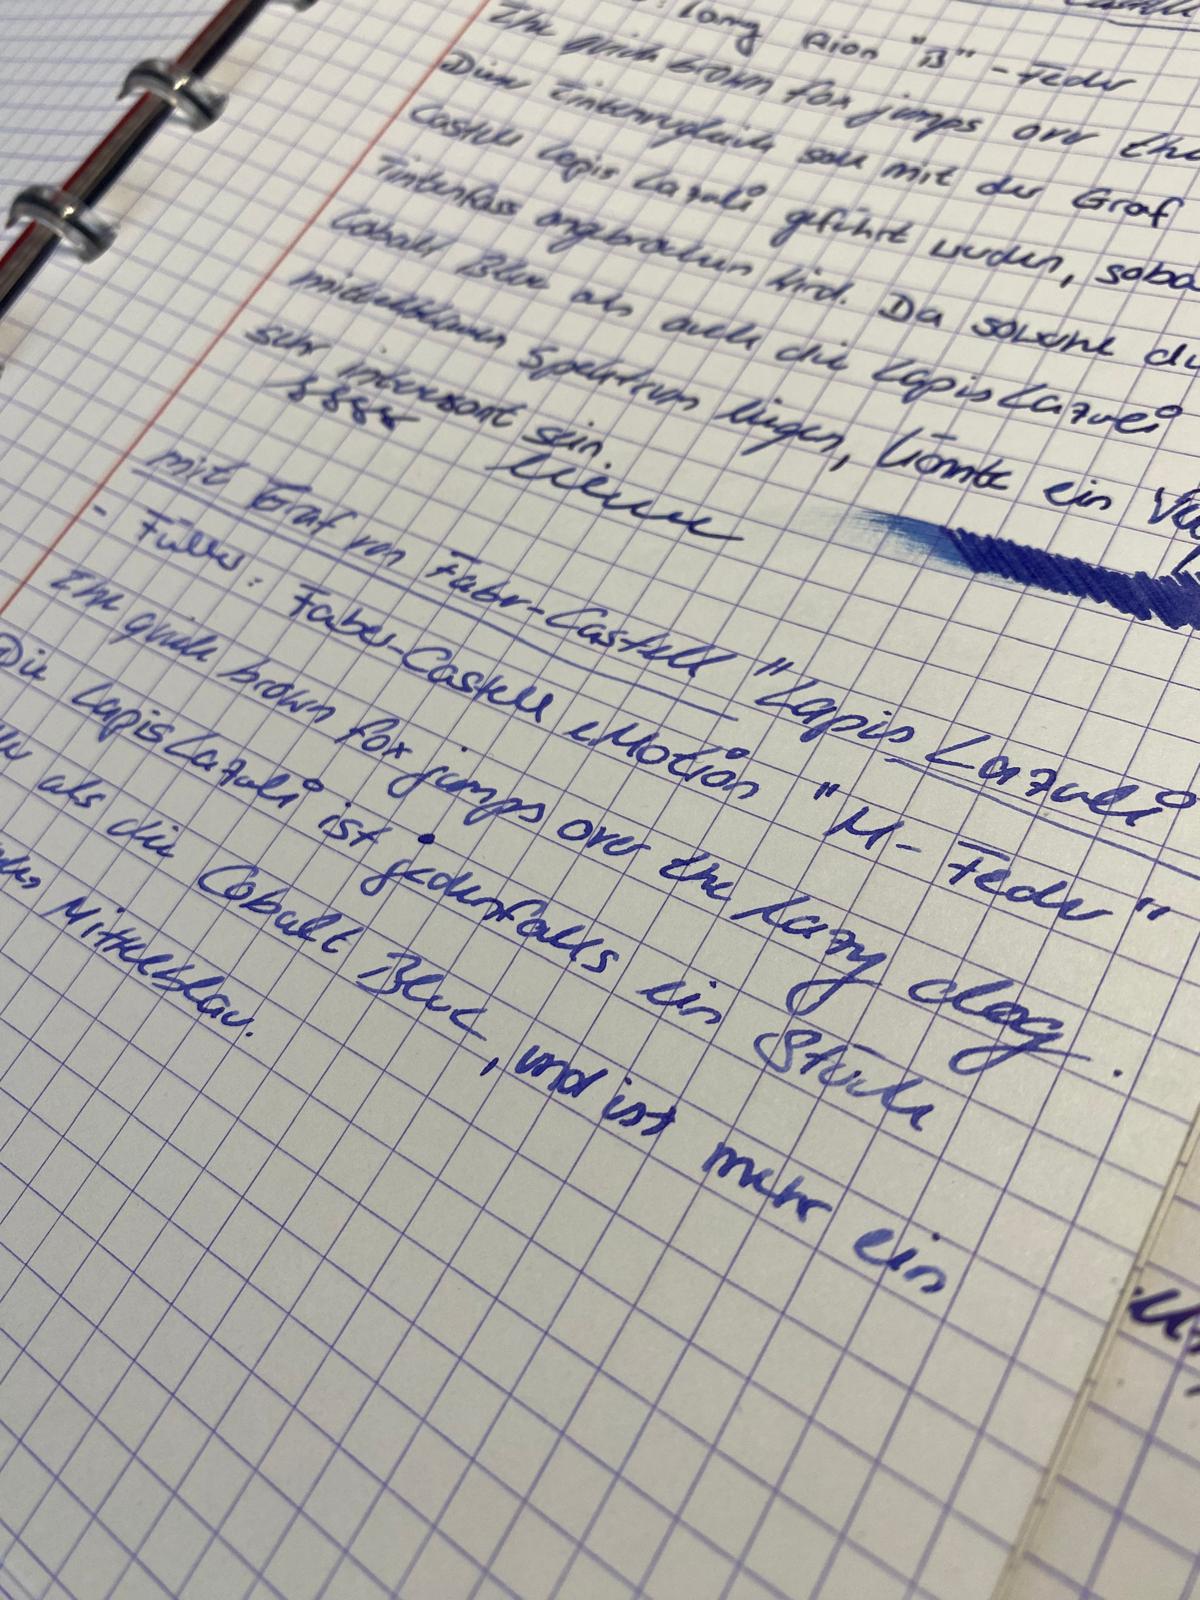 Lamy Aion "B" - Feder
The quick brown fox jumps over the
Dieser Tintenvergleich soll mit der Graf
Castell Lapis Lazuli geführt werden,
Tintenfass angebrochen wird. Da sowohl
Cobalt Blue als auch die Lapis Lazuli
mittelblauen Spektrum liegen, könnte ein
sehr interessant sein.
mit Graf von Faber-Castell "Lapis Lazuli
- Füller: Faber-Castell eMotion "M - Feder"
The quick brown fox jumps over the lazy dog.
Die Lapis Lazuli ist jedenfalls ein Stück
als die Cobalt Blue, und ist mehr ein
Mittelblau.